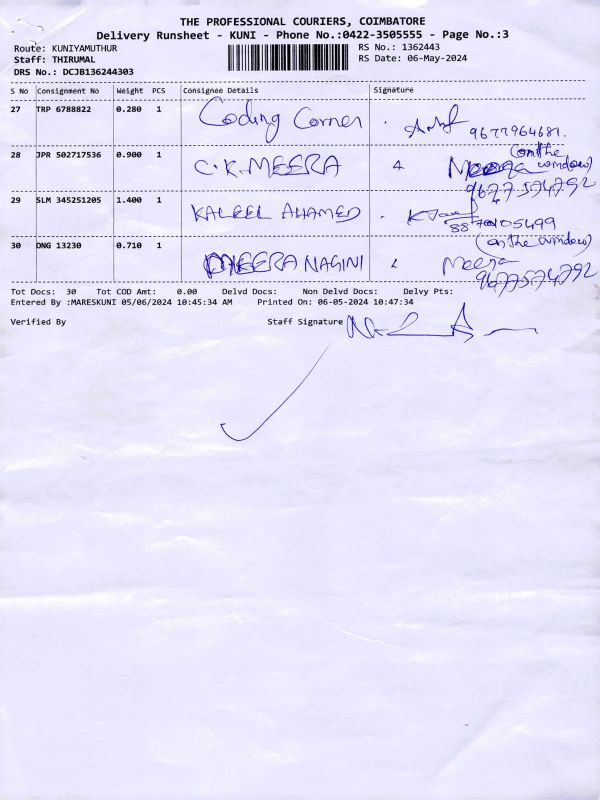 THE PROFESSIONAL COURIERS, COIMBATORE
Delivery Runsheet - KUNI - Phone No.:0422-3505555 - Page No.:3
Route: KUNIYAMUTHUR RS No.: 1362443
Staff: THIRUMAL RS Date: 06-May-2024
DRS No.: DCJB136244303
S No Consignment No Weight PCS Consignee Details Signature
27 TRP 6788822 0.280 1 Coding Corner
9677964681.
28 JPR 502717536 0.900 1 C.K. MEERA Meera (on the window)
9677574792
29 SLM 345251205 1.400 1 KALEEL AHAMED
8870105499
30 DNG 13230 0.710 1 MEERA NAGINI Meera (on the window)
9677574792
Tot Docs: 30 Tot COD Amt: 0.00 Delvd Docs: Non Delvd Docs: Delvy Pts:
Entered By :MARESKUNI 05/06/2024 10:45:34 AM Printed On: 06-05-2024 10:47:34
Verified By Staff Signature